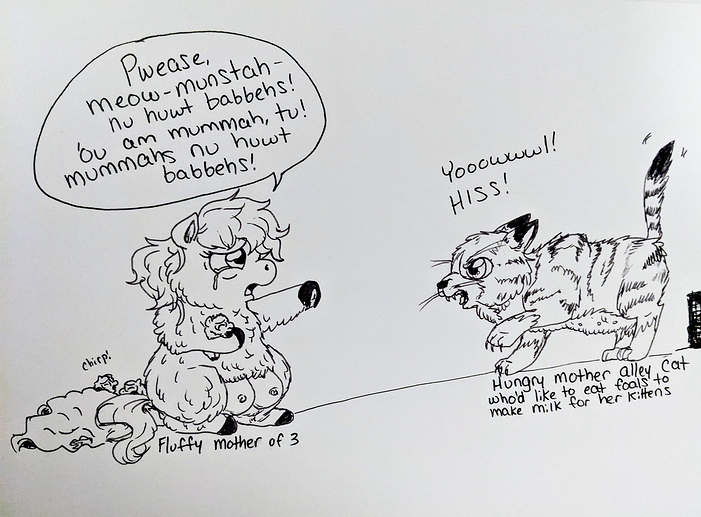 Pwease,
meow-munstah-
nu huwt babbehs!
'ou am mummah, tu!
mummahs nu huwt
babbehs!
Yooowwwl!
HISS!
chirp!
Fluffy mother of 3
Hungry mother alley cat
who'd like to eat foals to
make milk for her kittens